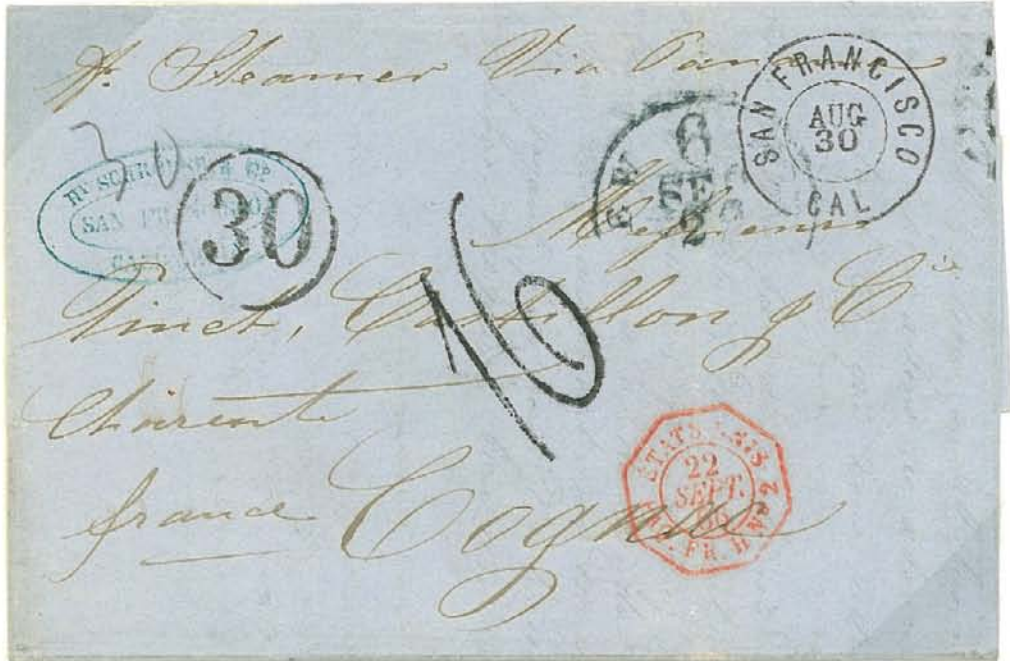 Pr Steamer Via Panama
SAN FRANCISCO
AUG
30
CAL
30
Hy SCHR
SAN FRANCISCO
30
6
SEP
2
Messieurs
Pinet, Castillon & Cie
Charente
16
france Cognac
ETATS-UNIS
22
SEPT.
PAQ. FR. H Nº 2